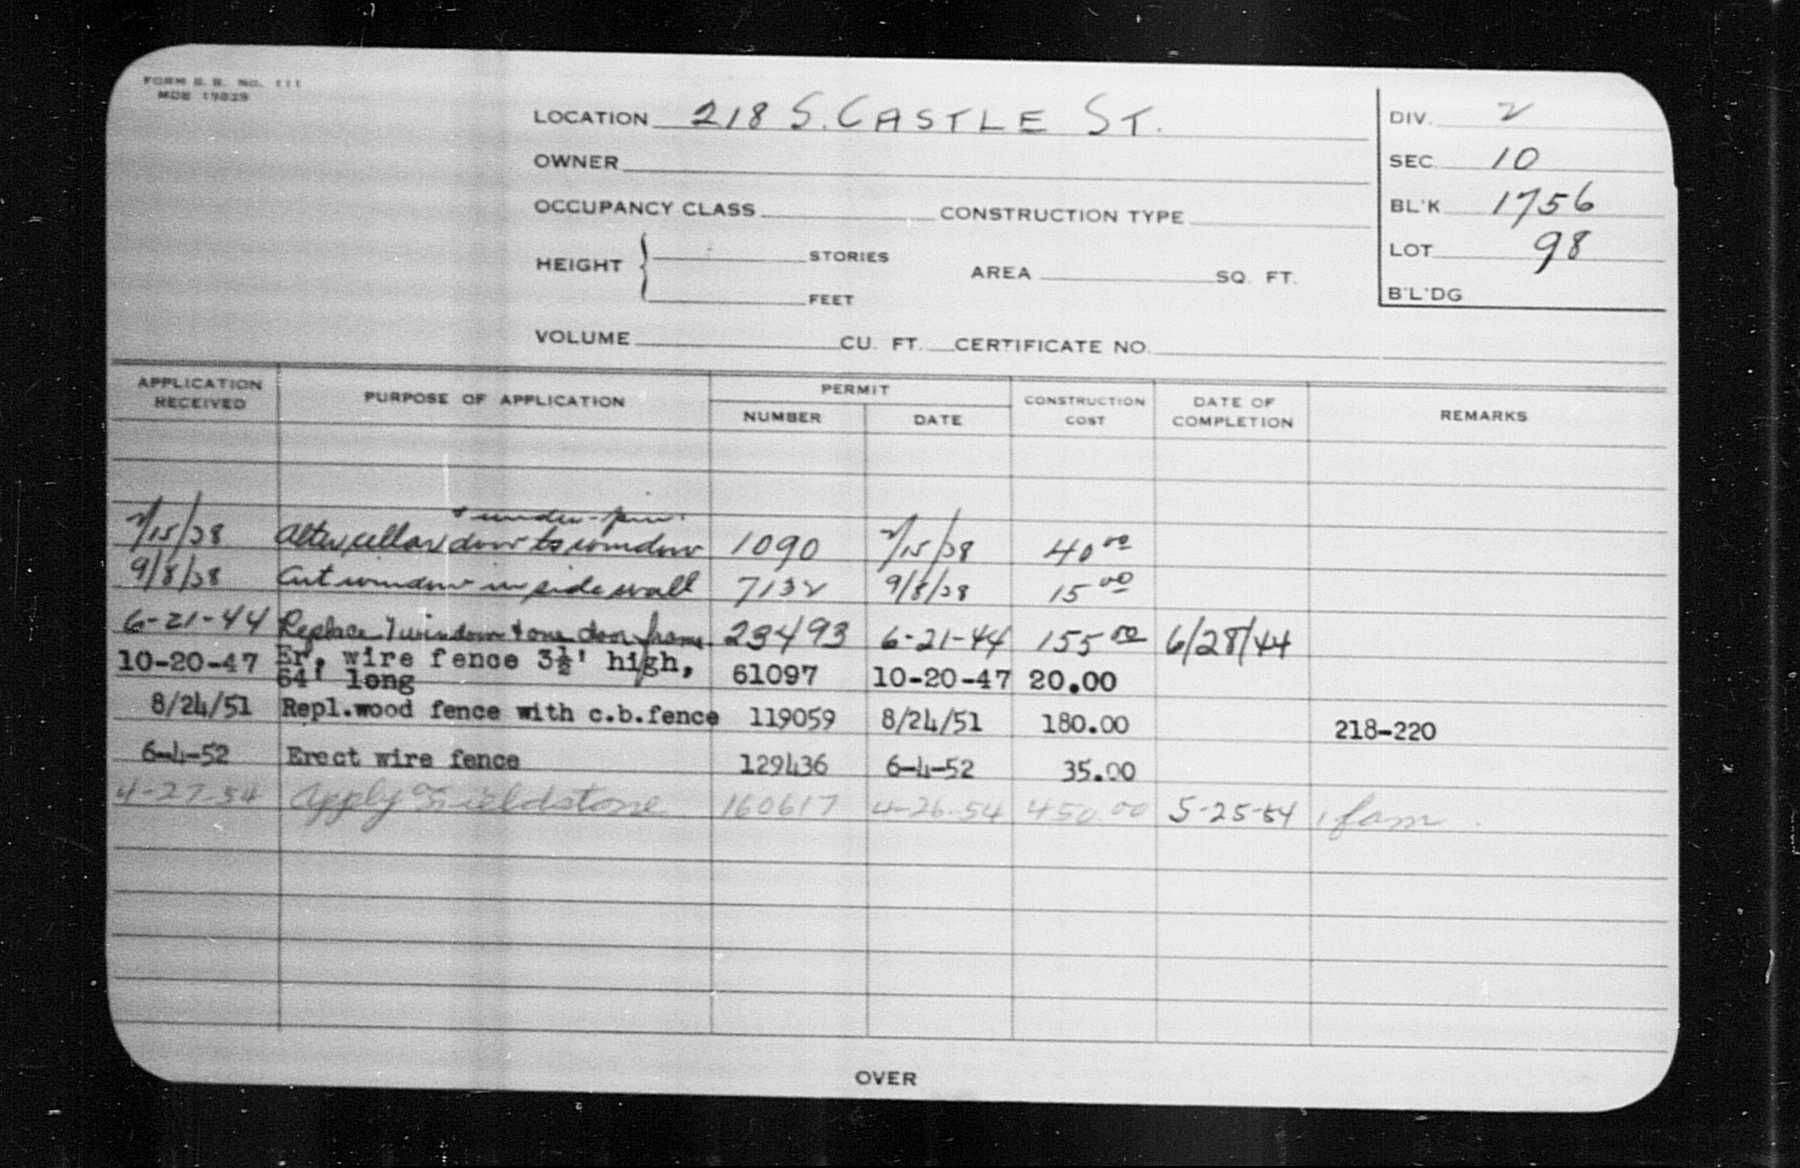 FORM B. R. NO. 111
MDE 19829
LOCATION 218 S. CASTLE ST.
OWNER
OCCUPANCY CLASS CONSTRUCTION TYPE
HEIGHT { STORIES
FEET
AREA SQ. FT.
VOLUME CU. FT. CERTIFICATE NO.
DIV. 2
SEC. 10
BL'K 1756
LOT 98
B'L'DG
APPLICATION RECEIVED PURPOSE OF APPLICATION PERMIT NUMBER DATE CONSTRUCTION COST DATE OF COMPLETION REMARKS
& under-pin.
2/15/38 Alter cellar door to window 1090 2/15/38 40.00
9/8/38 Cut window in side wall 7132 9/8/38 15.00
6-21-44 Replace 7 windows & one door frame 23493 6-21-44 155.00 6/28/44
10-20-47 Er. wire fence 3½' high, 61097 10-20-47 20.00
64' long
8/24/51 Repl.wood fence with c.b.fence 119059 8/24/51 180.00 218-220
6-4-52 Erect wire fence 129436 6-4-52 35.00
4-27-54 Apply Fieldstone 160617 4-26-54 450.00 5-25-54 1 fam.
OVER